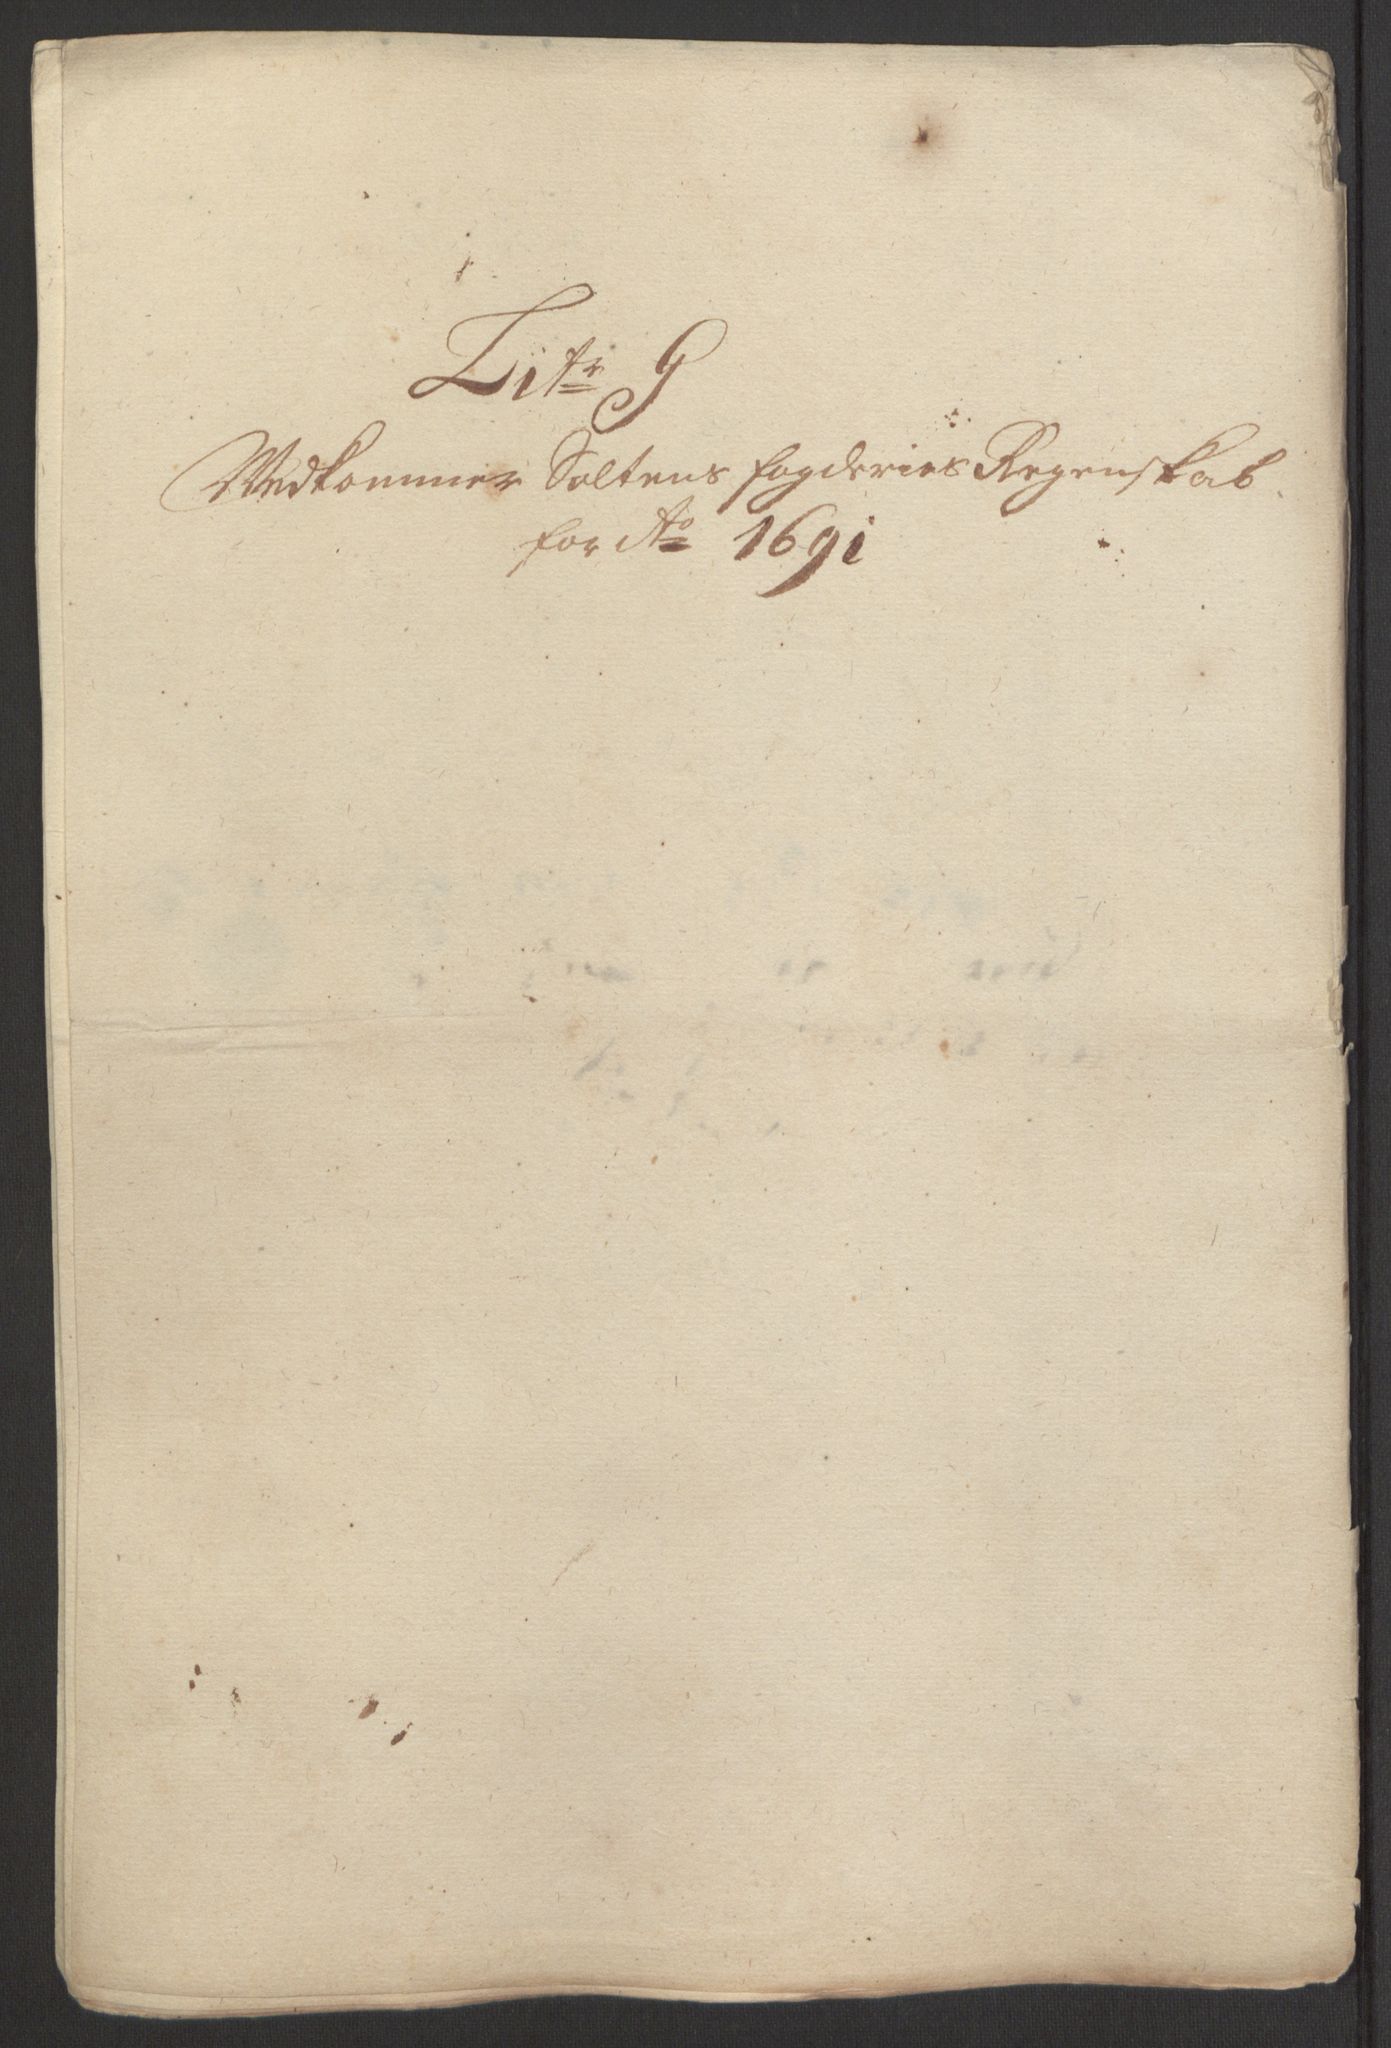 Litr G
Wedkommer Saltens fogderies Regenskab
for Ao 1691